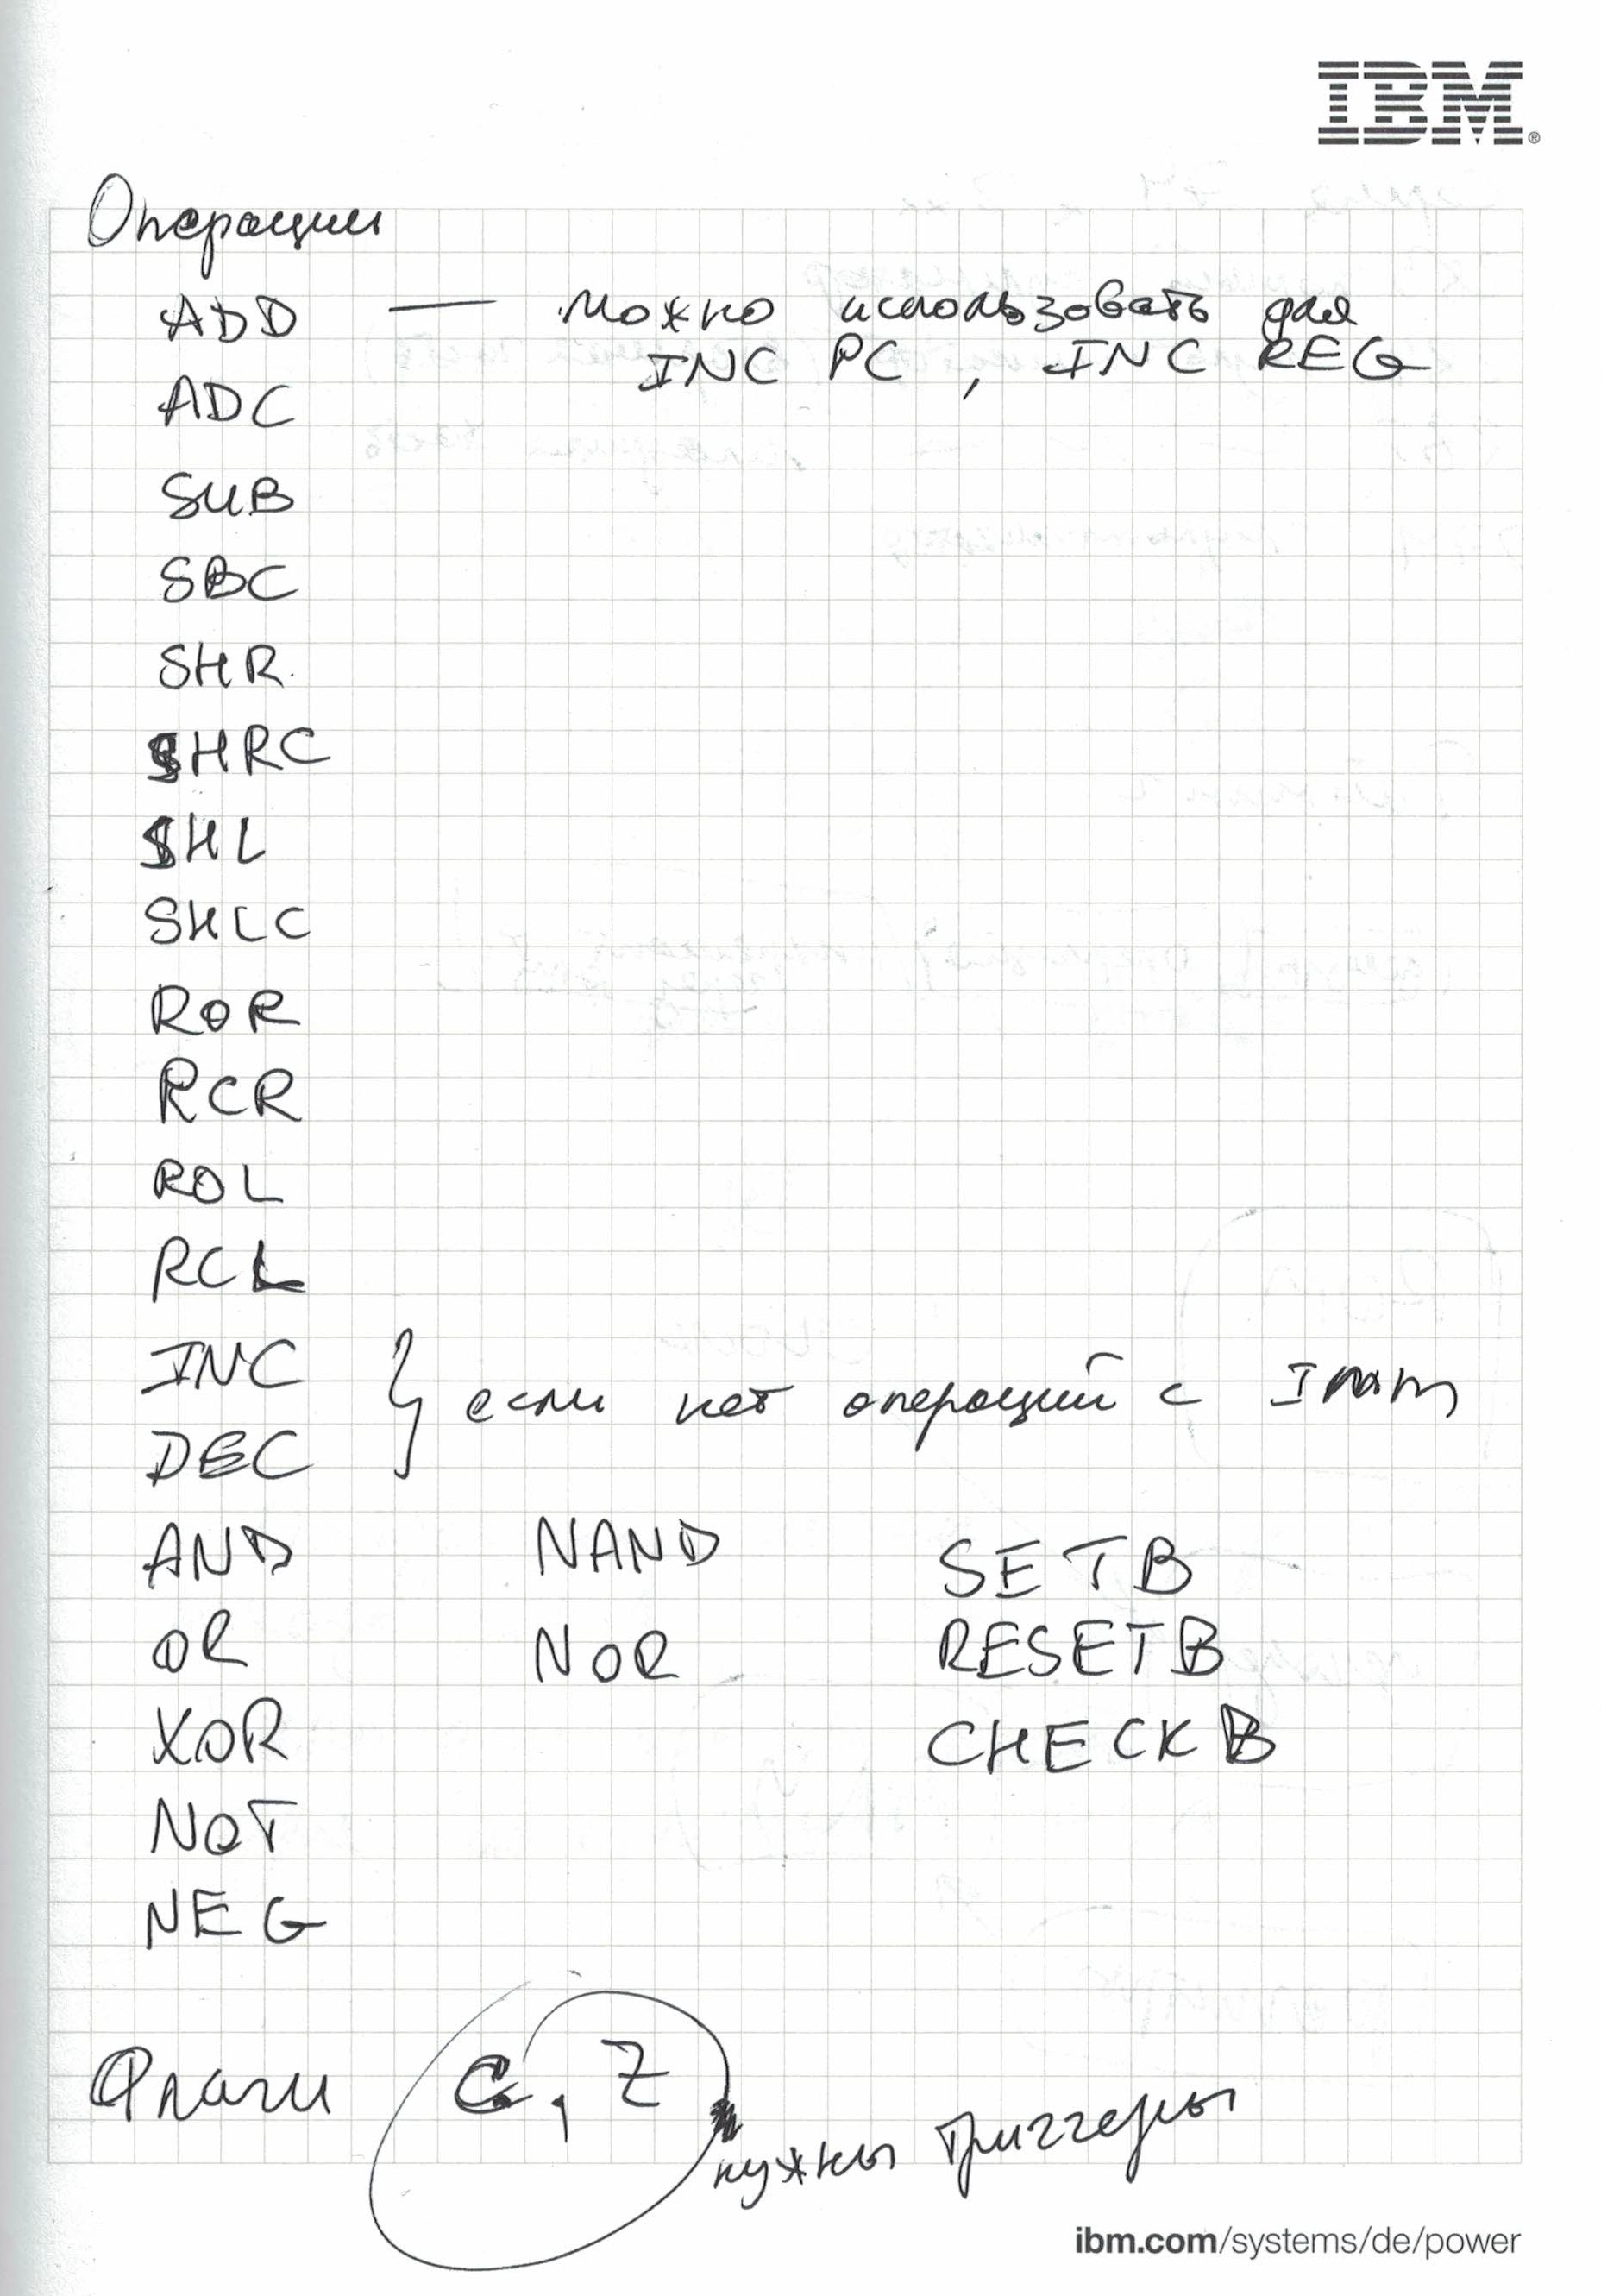 IBM®
Операции
ADD — можно использовать для
INC PC, INC REG
ADC
SUB
SBC
SHR
SHRC
SHL
SHLC
ROR
RCR
ROL
RCL
INC } если нет операций с Imm
DEC
AND NAND SETB
OR NOR RESETB
XOR CHECKB
NOT
NEG
Флаги C, Z нужны триггеры
ibm.com/systems/de/power